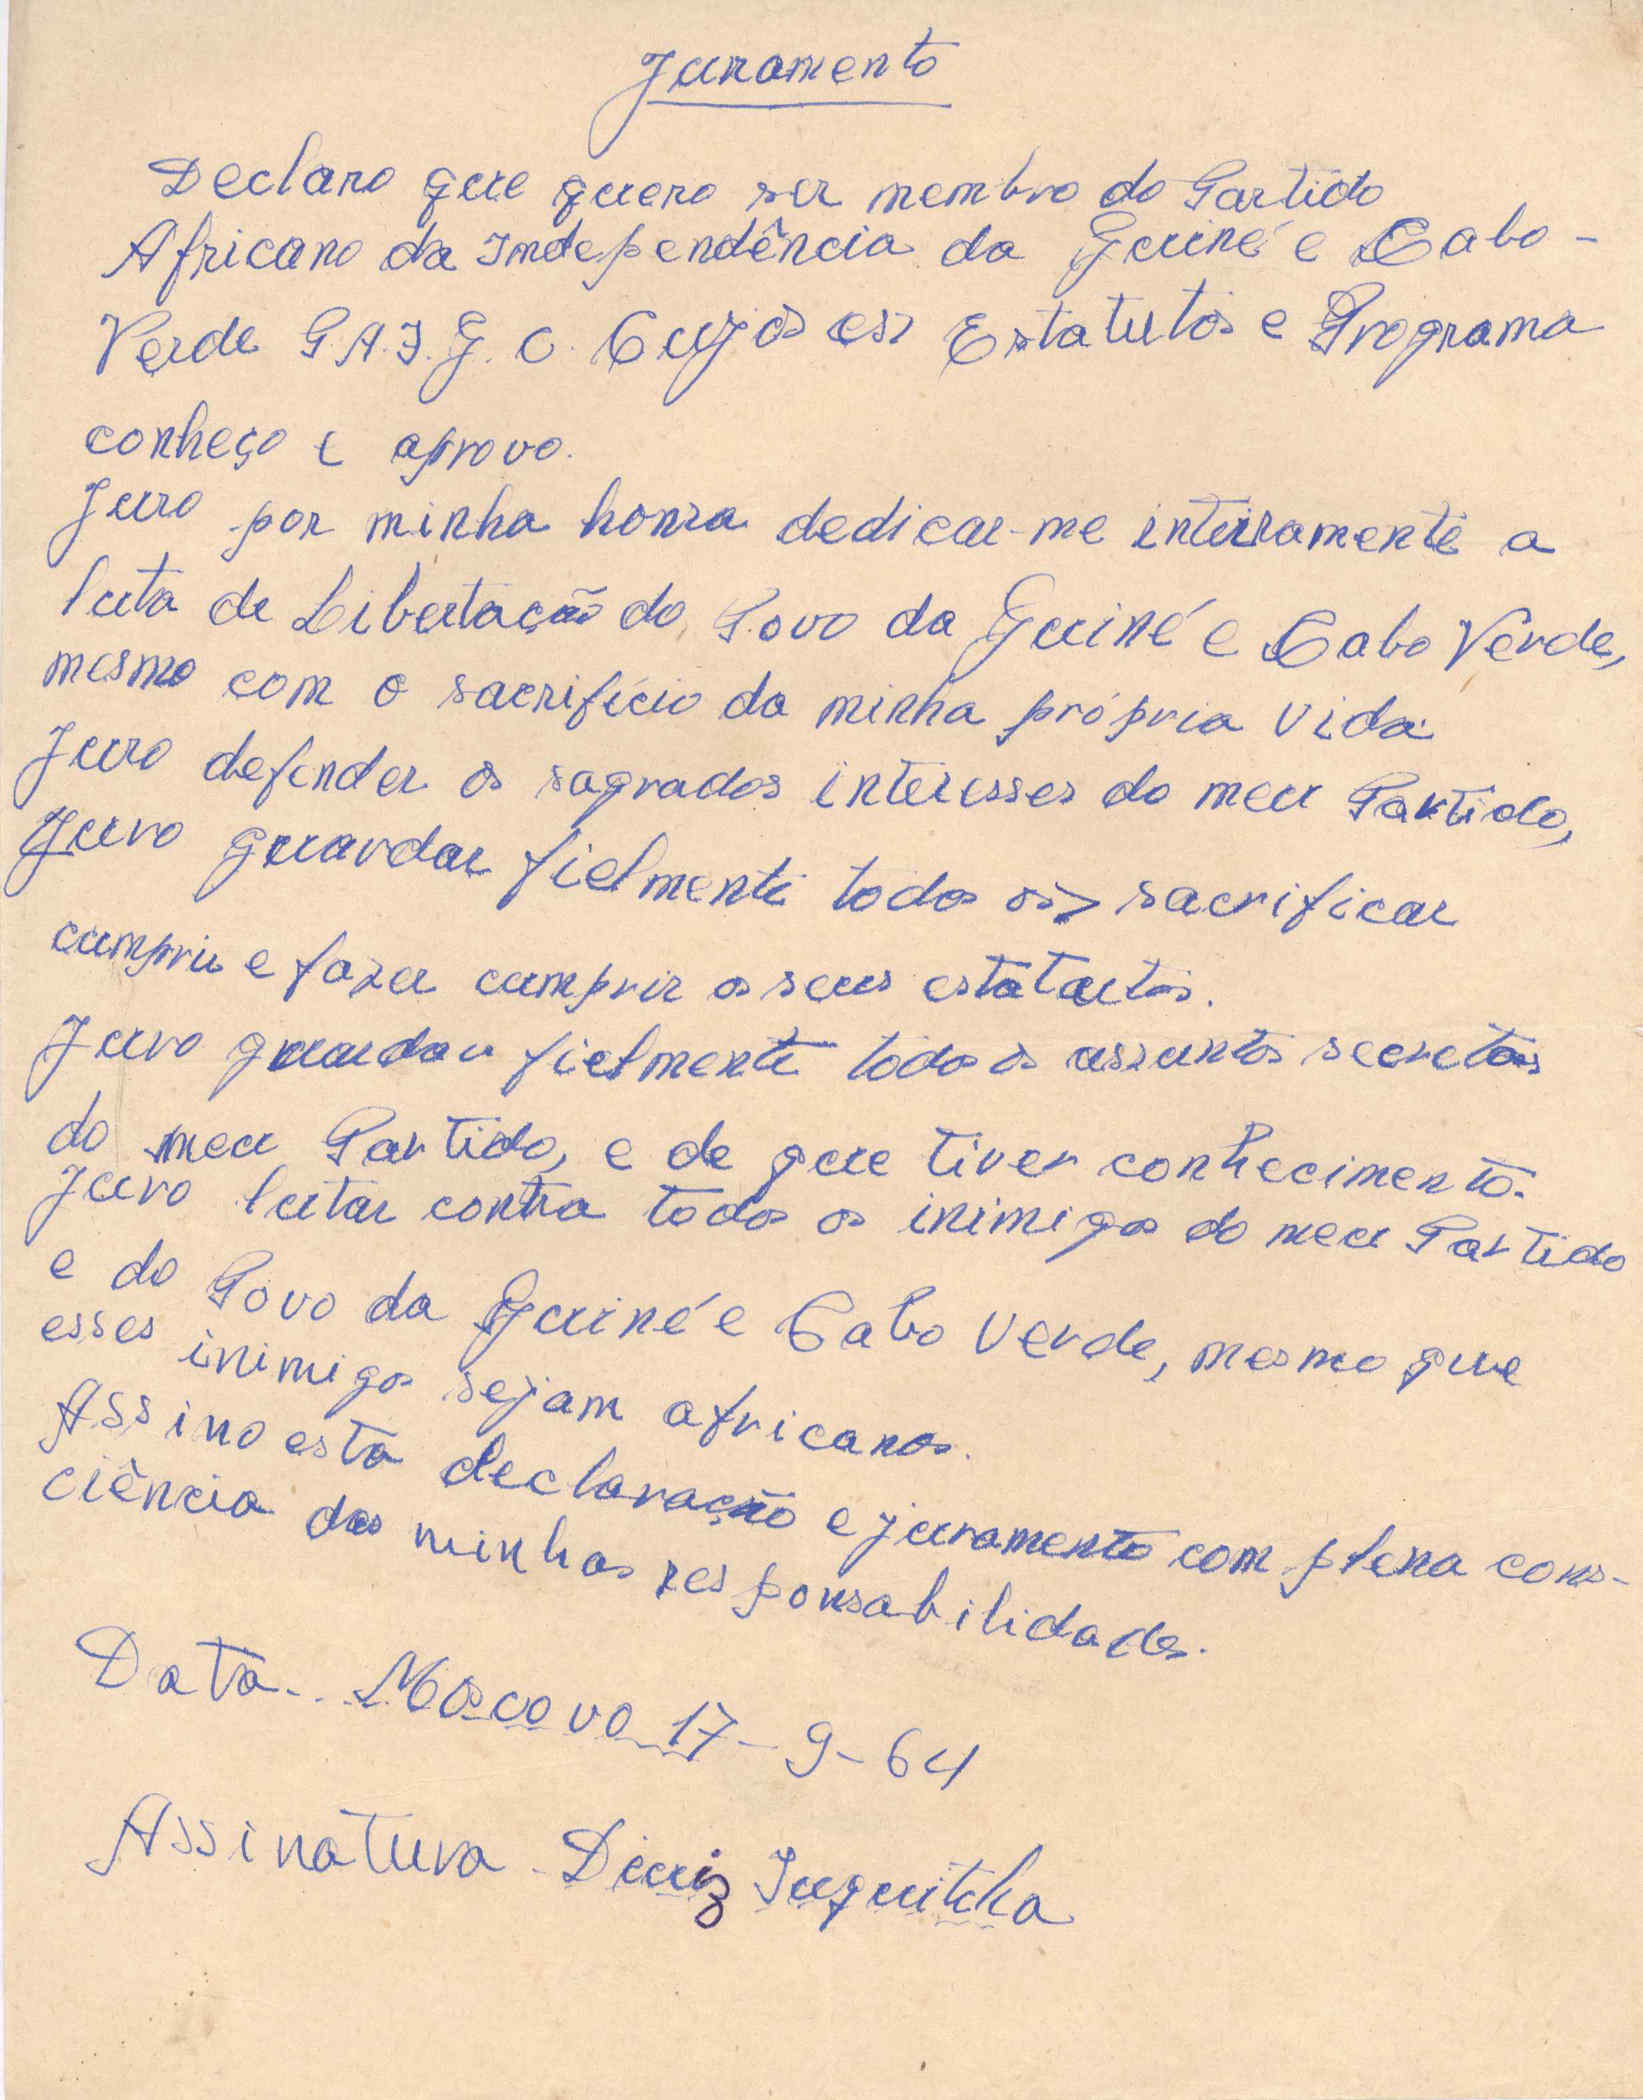 Juramento
Declaro que quero ser membro do Partido
Africano da Independência da Guiné e Cabo-
Verde P.A.I.G.C. Cujos os Estatutos e Programa
conheço e aprovo.
Juro por minha honra dedicar-me inteiramente a
luta de Libertação do Povo da Guiné e Cabo Verde,
mesmo com o sacrifício da minha própria vida.
Juro defender os sagrados interesses do meu Partido,
Juro guardar fielmente todos os sacrificar
cumprir e fazer cumprir os seus estatutos.
Juro guardar fielmente todos os assuntos secretos
do meu Partido, e de que tiver conhecimento.
Juro lutar contra todos os inimigos do meu Partido
e do Povo da Guiné e Cabo Verde, mesmo que
esses inimigos sejam africanos.
Assino esta declaração e juramento com plena cons-
ciência das minhas responsabilidades.
Data... Moscovo 17-9-64
Assinatura - Diniz